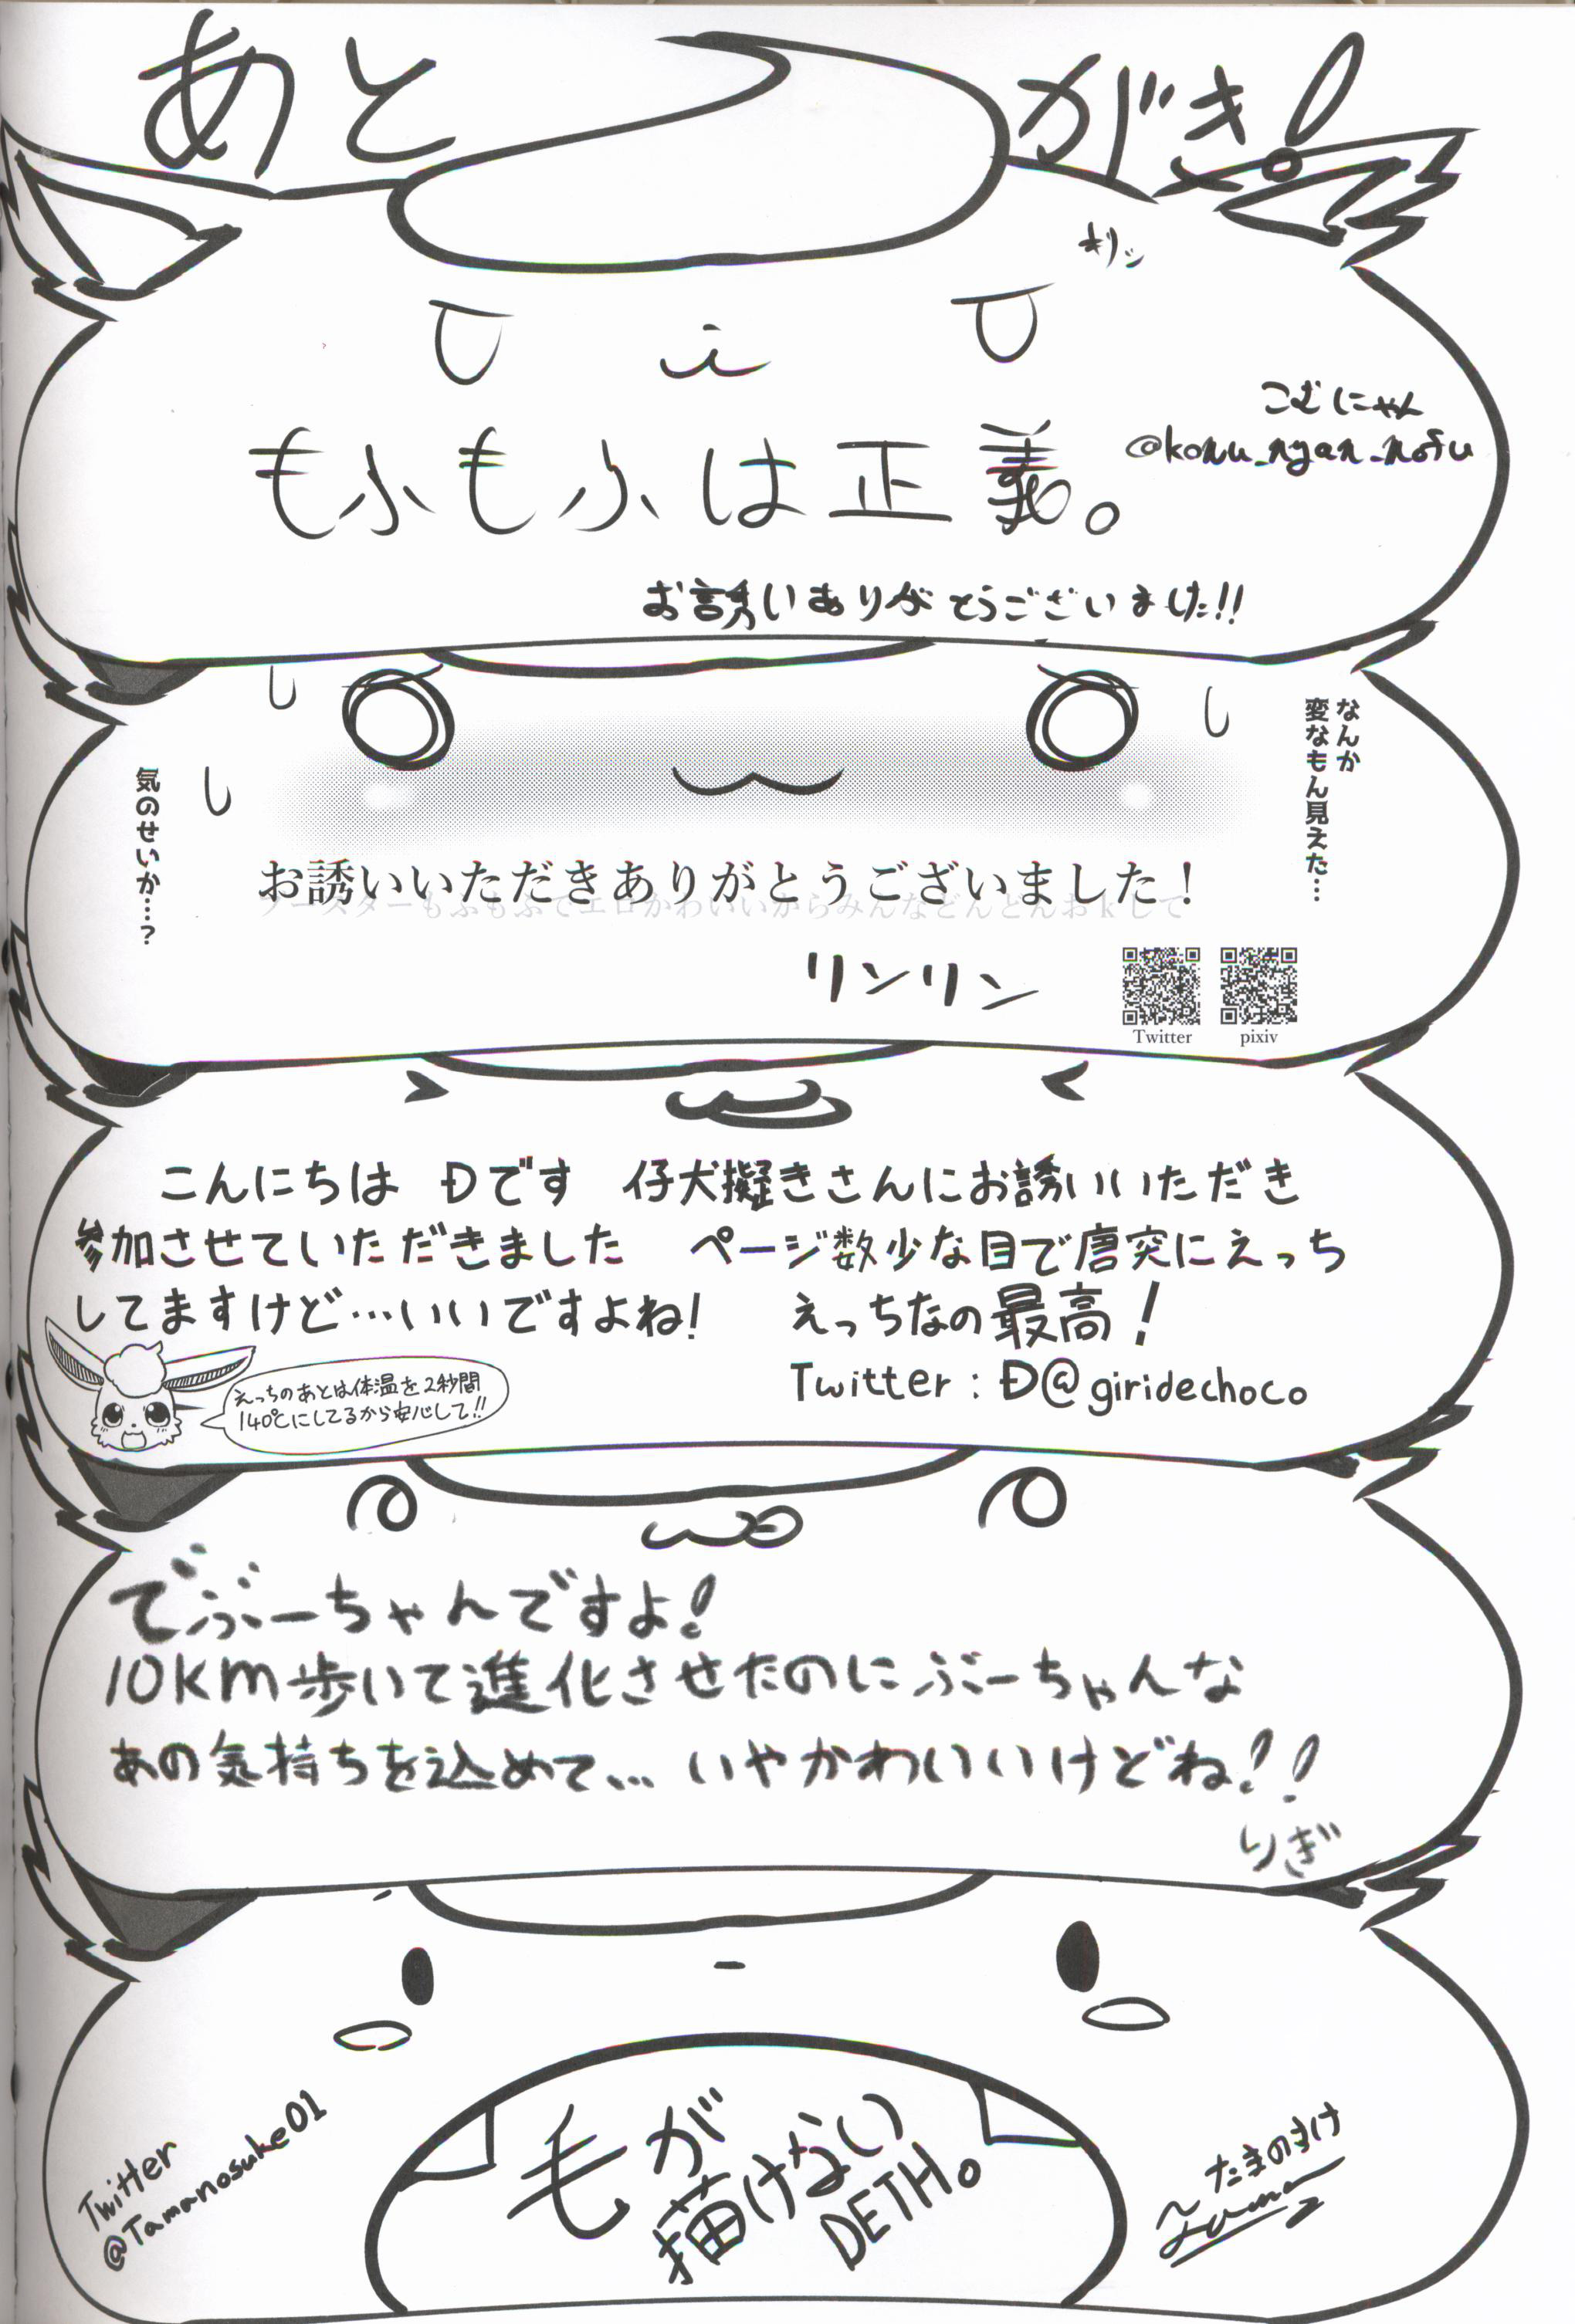 あとがき!
キリッ
もふもふは正義。
こむにゃん
@komu_nyan_mofu
お誘いありがとうございました!!
なんか
変なもん見えた…
気のせいか…?
お誘いいただきありがとうございました！
ブースターもふもふでエロかわいいからみんなどんどんおkして
リンリン
Twitter
pixiv
こんにちは Ðです 仔犬擬きさんにお誘いいただき
参加させていただきました ページ数少な目で唐突にえっち
してますけど…いいですよね! えっちなの最高!
Twitter : Ð@giridechoco
えっちのあとは体温を2秒間
140℃にしてるから安心して!!
でぶーちゃんですよ!
10km歩いて進化させたのにぶーちゃんな
あの気持ちを込めて… いやかわいいけどね!!
りぎ
毛が
描けない
DETH。
Twitter
@Tamanosuke01
たまのすけ